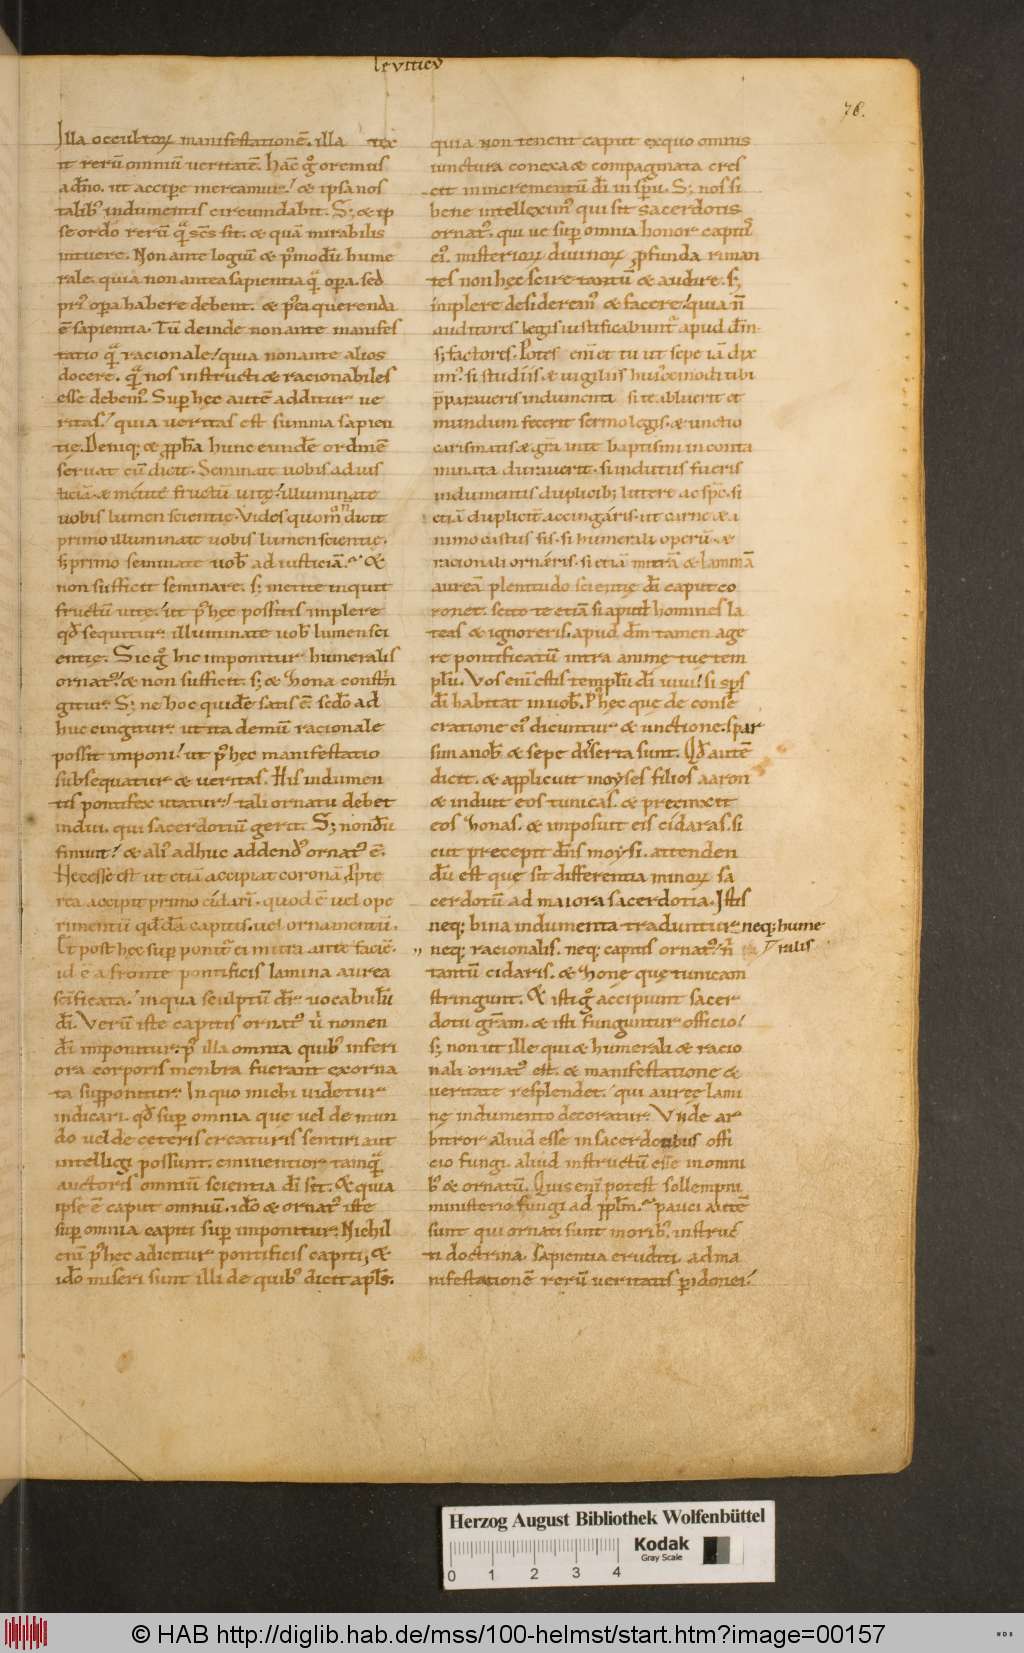 leviticu
76.
Illa occultoꝝ manifestationē. illa tex
it rerū omniū veritatē. Hac gͦ oremus
ad̄no. ut accipe mereamur! & ipsa nos
talibꝰ indumentis circumdabit. S; & ip
se ordo rerū qᷓ scs̄ sit. & quā mirabilis
intuere. Non ante logiū & pꝰmodū hume
rale. quia non antea sapientia qᷓ opa. sed
priꝰ opa habere debent. & pꝰea querenda
ē sapientia. Tū deinde non ante manifes
tatio qᷓ racionale! quia non ante alios
docere. qᷓ nos instructi & racionabiles
esse debemꝰ. Sup hec autē additur ve
ritas! quia veritas est summa sapien
tię. Deniq; & ꝓph̄a hunc eundē ordinē
servat cū dicit. Seminate vobis ad ius
ticiā. & metite fructū vitę! illuminate
vobis lumen scientię. Vides quom̊ n̄ dicit
primo illuminate vobis lumen scientię.
s; primo seminate vob̄ ad iusticiā. &
non sufficit seminare. s; metite inquit
fructū vitę! ut pꝰ hec possitis implere
qd̄ sequitur. illuminate vob̄ lumen sci
entię. Sic gͦ hic imponitur humeralis
ornatꝰ! & non sufficit. s; & zona constri̅
gitur. S; ne hoc quidē satis ē. sedo ad
huc cingitur. ut ita demū racionale
possit imponi! ut pꝰ hec manifestatio
subsequatur & veritas. His indumen
tis pontifex utatur! tali ornatu debet
indui. qui sacerdotiū gerit. S; nondū
finiuit! & aliꝰ adhuc addendꝰ ornatꝰ ē.
Necesse est ut etiā accipiat coronā. Ꝓpte
rea accipit primo cidari̅. quod ē vel ope
rimentū qd̄dā capitis. vel ornamentū.
Et post hec sup ponit ei mitra. ante faciē.
id ē a fronte pontificis lamina aurea
sc̄ificata. in qua sculptū dr̄ vocabulū
dī. Verū iste capitis ornatꝰ ubi nomen
dī imponitur. pꝰ illa omnia quibꝰ inferi
ora corporis menbra fuerant exorna
ta supponitur. In quo michi videtur
indicari. qd̄ sup omnia que vel de mun
do vel de ceteris creaturis sentiri aut
intelligi possunt. eminentior tamqᷓ
auctoris omniū scientia dī sit. & quia
ipse ē caput omniū. idō & ornatꝰ iste
sup omnia capiti sup imponitur. Nichil
eni̅ pꝰ hec adicitur pontificis capiti; &
idō miseri sunt illi de quibꝰ dicit apls̄.
quia non tenent caput ex quo omnis
iunctura conexa & compaginata cres
cit in incrementū dī in spū. S; nos si
bene intelleximꝰ qui sit sacerdotis
ornatꝰ. qui ve sup omnia honor capitis
eiꝰ. misterioꝝ divinoꝝ ꝓfunda riman
tes non hęc scire tantū & audire. s;
implere desideremꝰ & facere! quia n̄
auditores legis iustificabunt apud dm̄
s; factores. Potes eni̅ et tu ut sepe iā dix
imꝰ. si studiis & vigiliis huicemodi tibi
p̄paraveris indumenti si te abluerit et
mundum fecerit sermo legis. & unctio
carismatis & grā. ivit baptismi in conta
minata duraverit. si indutus fueris
indumentis duplicib; littere ac spc̄. si
etiā duplicit̄ accingaris. ut carne & a
nimo castus sis. si humerali operū. &
racionali orneris. si etiā mitrā & lammā
aureā plenitudo scientię dī caput co
ronet. scito te etiā si apud homines la
teas & ignoreris. apud dm̄ tamen age
re pontificatū intra anime tuę tem
plū. Vos eni̅ estis templū dī vivi! si sps̄
dī habitat in vob̄. Pꝰ hec quę de conse
cratione eiꝰ dicuntur & unctione. spar
sim a nob̄ & sepe diserta sunt. Qd̄ autē
dicit. & applicuit moyses filios aaron
& induit eos tunicas. & precinxit
eos zonas. & imposuit eis cidaras. si
cut precepit dn̄s moysi. attenden
dū est quę sit differentia minoꝝ sa
cerdotū ad maiora sacerdotia. Istis
neq; bina indumenta traduntur neq; hume
ralis
neq; racionalis. neq; capitis ornatꝰ. n̄
tantū cidaris. & zonę quę tunicam
stringunt. & isti gͦ accipiunt sacer
dotii grām. & isti funguntur officio!
s; non ut ille qui & humerali & racio
nali ornatꝰ est. & manifestatione &
veritate resplendet. qui auręę lami
nę indumento decoratur. Vnde ar
bitror aliud esse in sacerdotibus offi
cio fungi. aliud instructū esse in omni
bꝰ & ornatū. Quis eni̅ potest sollempni
ministerio fungi ad ꝓplm̄. pauci autē
sunt qui ornati sunt moribꝰ. instruc
ti doctrina. sapientia eruditi. ad ma
nifestationē rerū veritatis pidonei!
Herzog August Bibliothek Wolfenbüttel
Kodak
Gray Scale
0 1 2 3 4
© HAB http://diglib.hab.de/mss/100-helmst/start.htm?image=00157